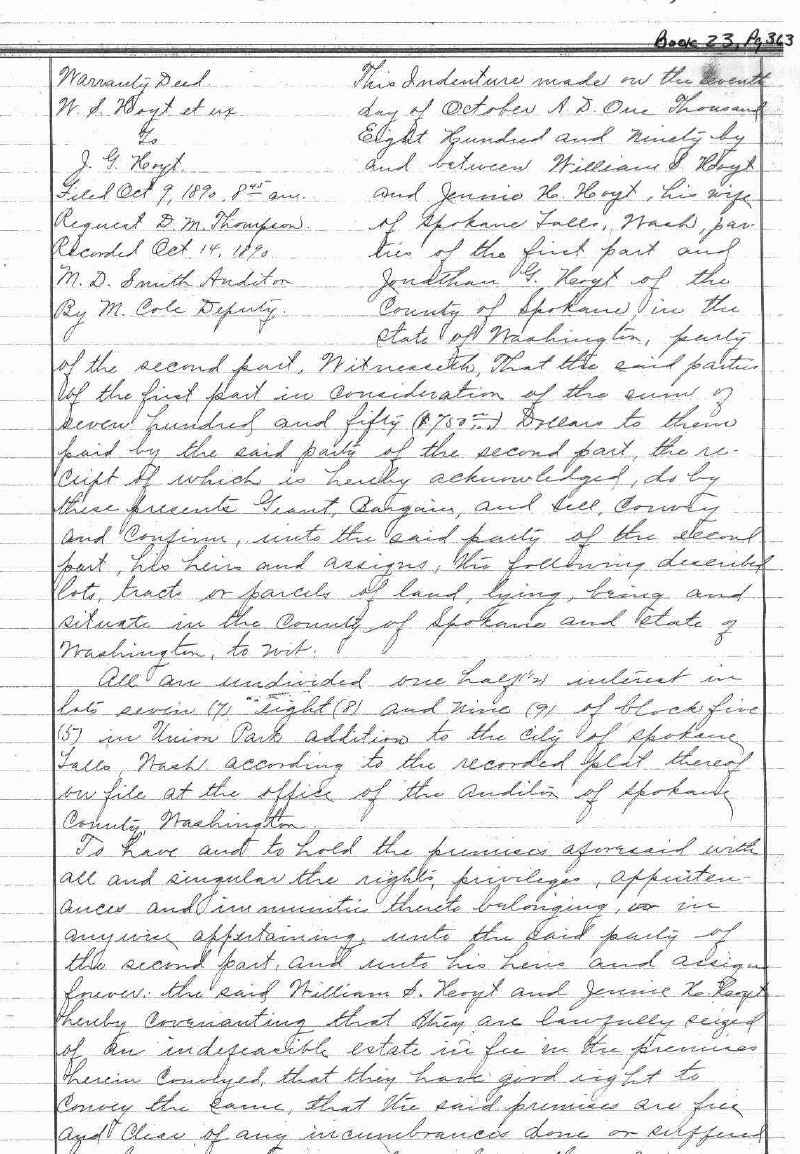 Book 23, Pg 363
Warranty Deed
W. S. Hoyt et ux
To
J. G. Hoyt.
Filed Oct 9, 1890. 8 45 am.
Request D. M. Thompson.
Recorded Oct 14, 1890
M. D. Smith Auditor
By M. Cole Deputy.
This Indenture made on the Seventh
day of October A D. One Thousand
Eight Hundred and Ninety by
and between William S Hoyt
and Jennie H. Hoyt, his wife
of Spokane Falls, Wash, par-
ties of the first part and
Jonathan G. Hoyt of the
County of Spokane in the
State of Washington, party
of the second part, Witnesseth, That the said parties
of the first part in consideration of the sum of
seven hundred and fifty ($750 00/100) Dollars to them
paid by the said party of the second part, the re-
ceipt of which is hereby acknowledged, do by
these presents Grant, Bargain, and Sell, Convey
and Confirm, unto the said party of the second
part, his heirs and assigns, the following described
lots, tracts or parcels of land, lying, being and
situate in the County of Spokane and State of
Washington, to wit:
All an undivided one half (1/2) interest in
lots seven (7) Eight (8) and nine (9) of block five
(5) in Union Park addition to the City of Spokane
Falls, Wash according to the recorded plat thereof
on file at the office of the Auditor of Spokane
County, Washington.
To have and to hold the premises aforesaid with
all and singular the rights, privileges, appurten-
ances and immunities thereto belonging, or in
anywise appertaining, unto the said party of
the second part, and unto his heirs and assigns
forever: the said William S. Hoyt and Jennie H. Hoyt
hereby covenanting that they are lawfully seized
of an indefeacible estate in fee in the premises
herein conveyed, that they have good right to
convey the same, that the said premises are free
and Clear of any incumbrances done or suffered